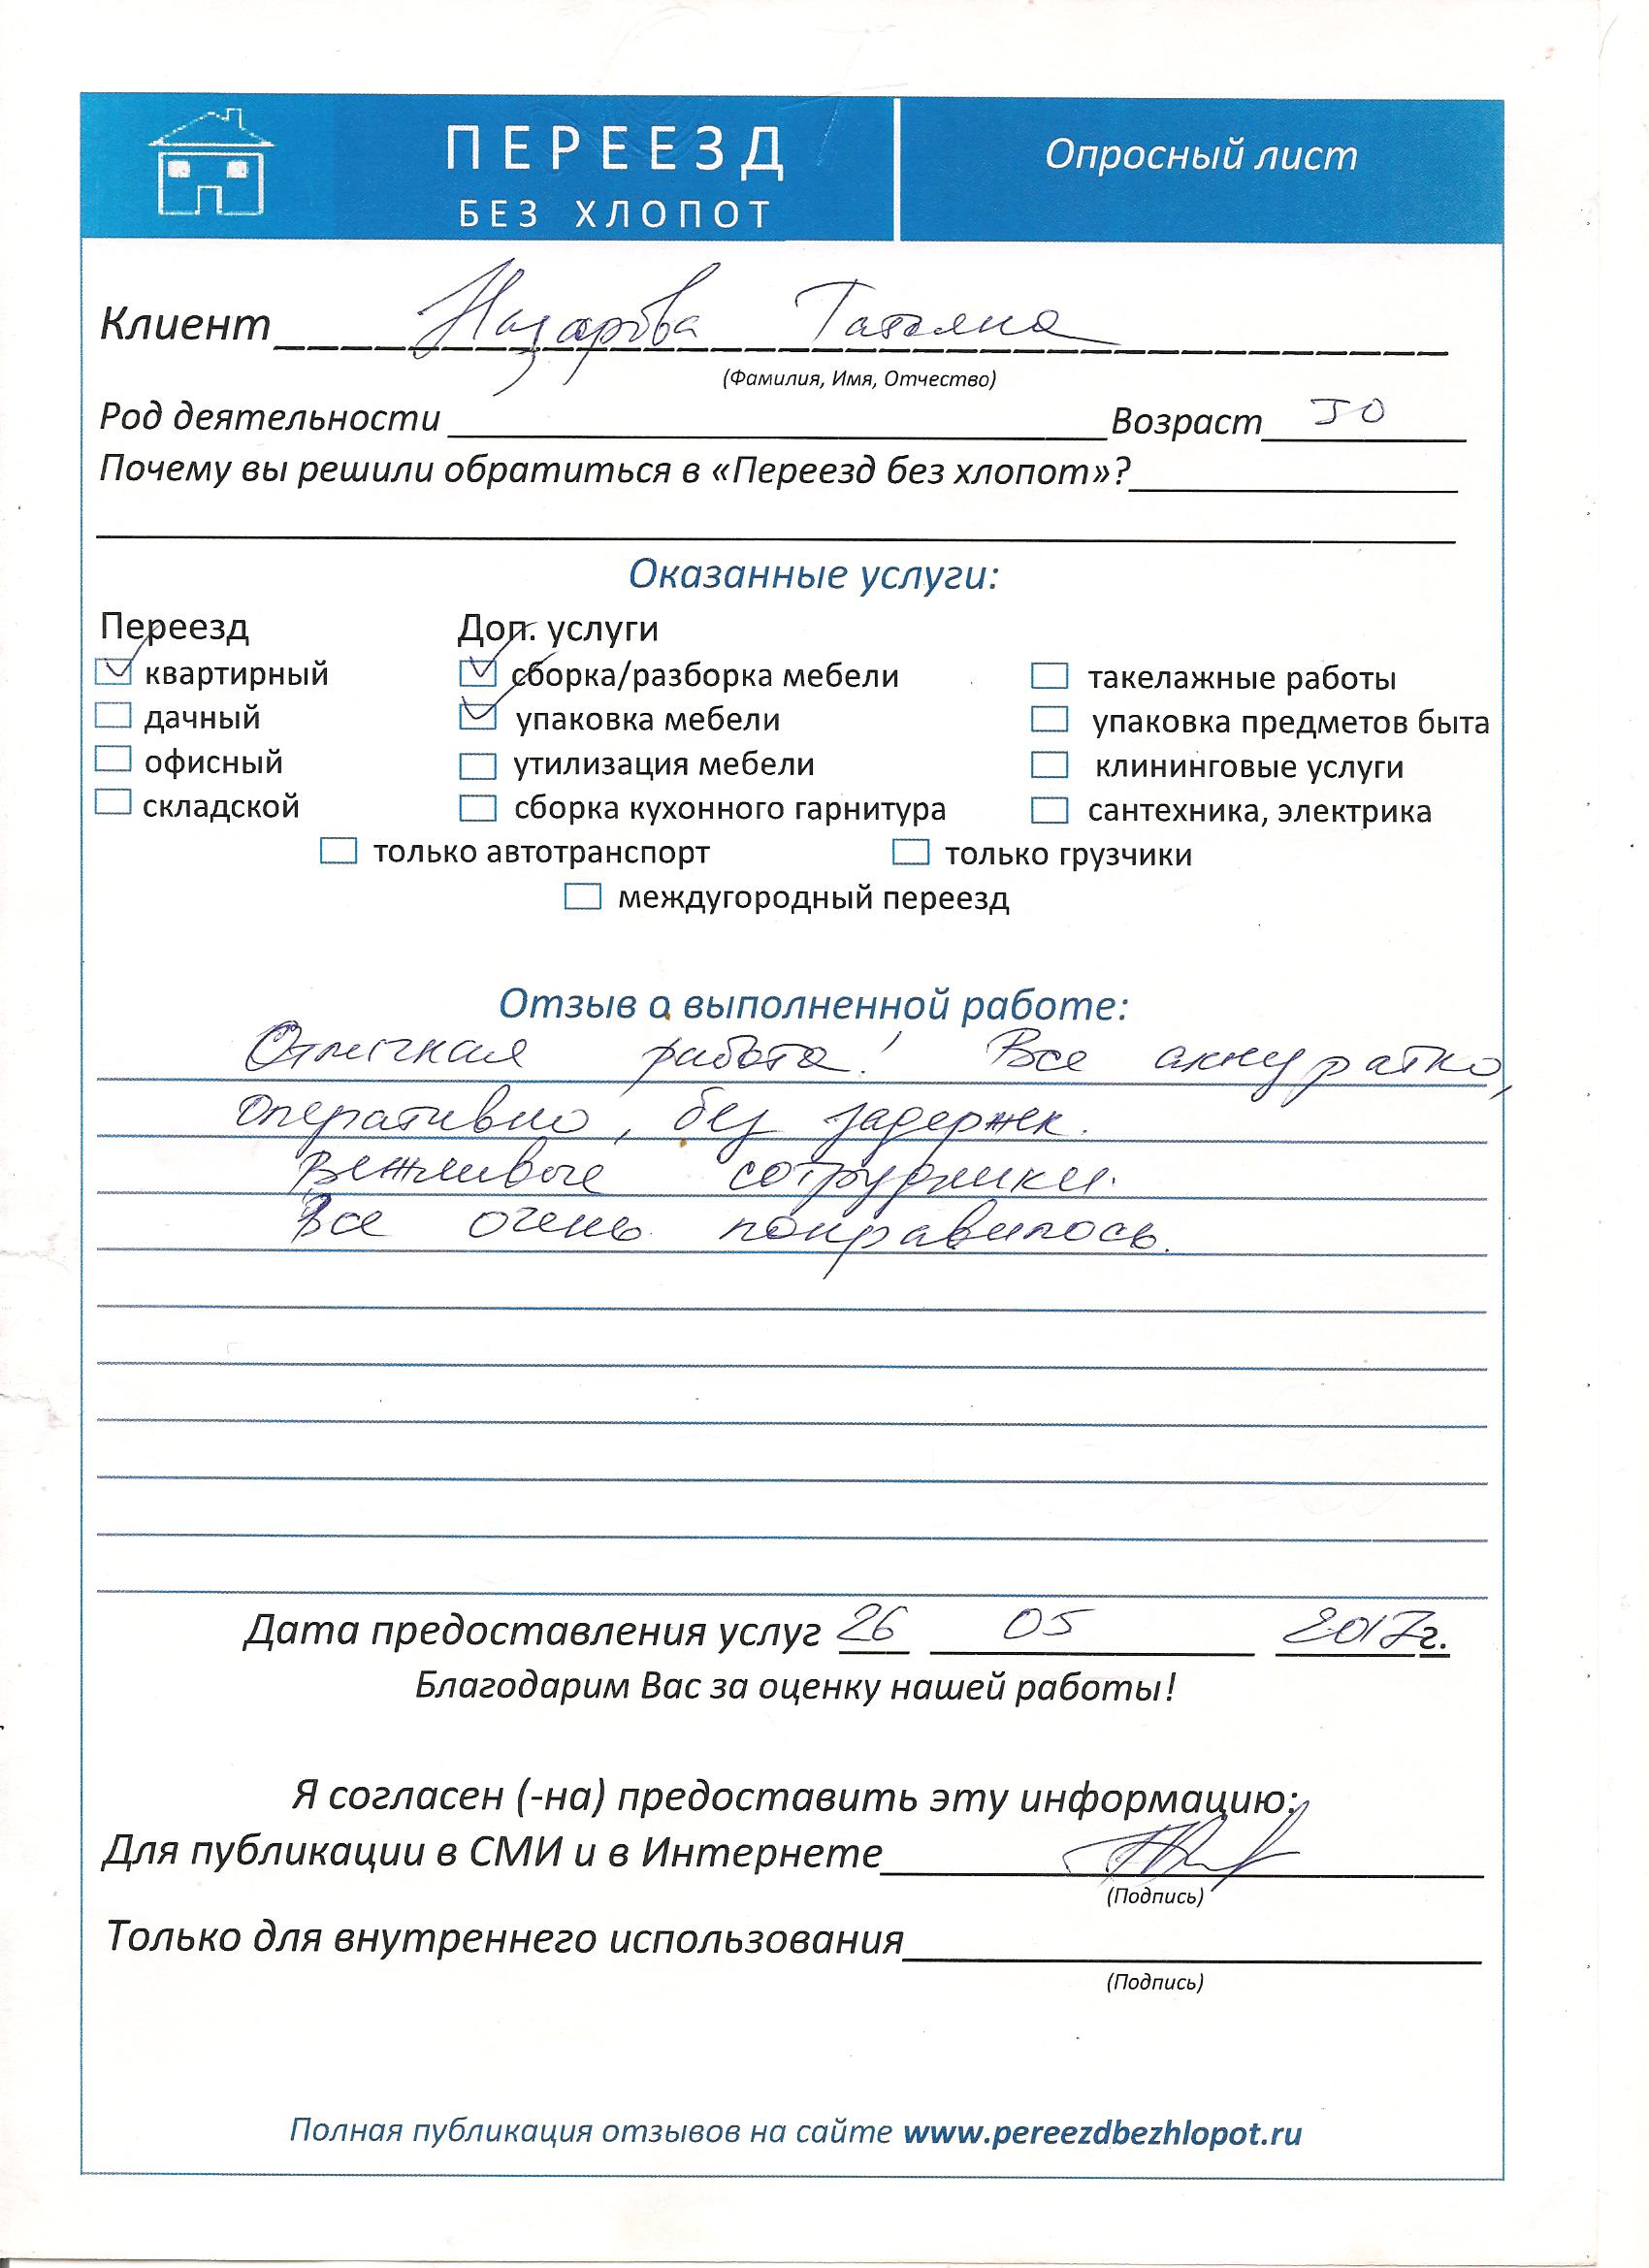 ПЕРЕЕЗД
БЕЗ ХЛОПОТ
Опросный лист
Клиент Назарова Татьяна
(Фамилия, Имя, Отчество)
Род деятельности Возраст 50
Почему вы решили обратиться в «Переезд без хлопот»?
Оказанные услуги:
Переезд Доп. услуги
квартирный сборка/разборка мебели такелажные работы
дачный упаковка мебели упаковка предметов быта
офисный утилизация мебели клининговые услуги
складской сборка кухонного гарнитура сантехника, электрика
только автотранспорт только грузчики
междугородный переезд
Отзыв о выполненной работе:
Отличная работа! Все аккуратно,
оперативно, без задержек.
Вежливые сотрудники.
Все очень понравилось.
Дата предоставления услуг 26 05 2017г.
Благодарим Вас за оценку нашей работы!
Я согласен (-на) предоставить эту информацию:
Для публикации в СМИ и в Интернете
(Подпись)
Только для внутреннего использования
(Подпись)
Полная публикация отзывов на сайте www.pereezdbezhlopot.ru